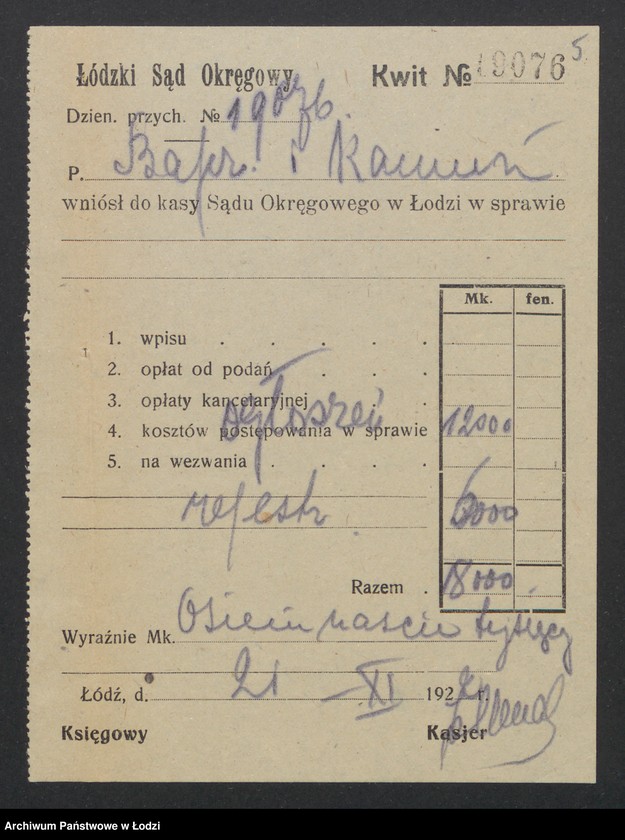 5
Łódzki Sąd Okręgowy Kwit № 19076
Dzien. przych. № 19076.
P. Bajer i Kamień
wniósł do kasy Sądu Okręgowego w Łodzi w sprawie
Mk. fen.
1. wpisu . . . . .
2. opłat od podań . . .
3. opłaty kancelaryjnej . .
ogłoszeń
4. kosztów postępowania w sprawie 12000
5. na wezwania . . . .
rejestr. 6000
Razem . 18000.
Wyraźnie Mk. Osiemnaście tysięcy
Łódź, d. 21 XI 1922 r.
Księgowy Kasjer
Archiwum Państwowe w Łodzi